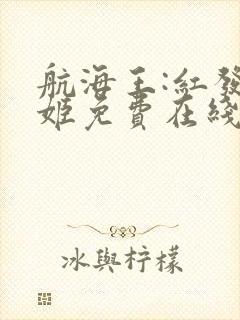 航海王:紅發
姬免費在綫
冰與柠檬